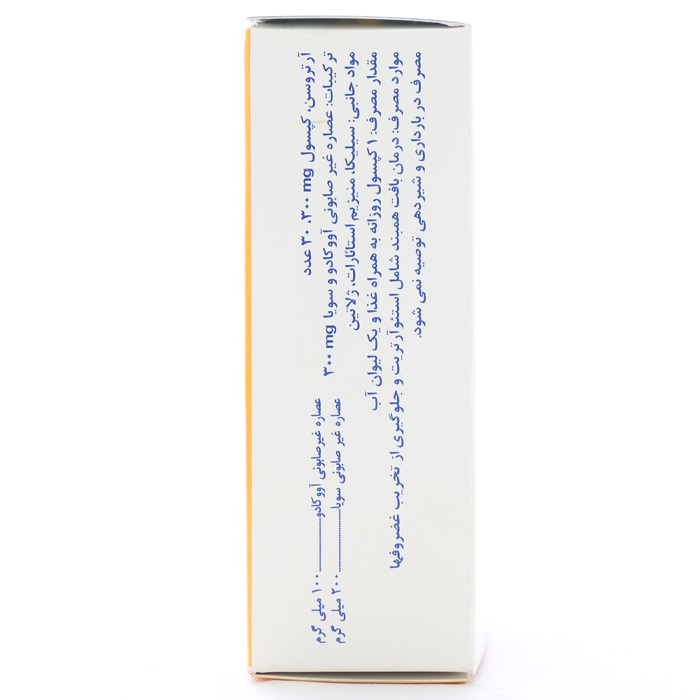 آرتروسن، کپسول ۳۰۰ mg، ۳۰ عدد
ترکیبات: عصاره غیر صابونی آووکادو و سویا ۳۰۰ mg
عصاره غیرصابونی آووکادو..............۱۰۰ میلی گرم
عصاره غیر صابونی سویا..............۲۰۰ میلی گرم
مواد جانبی: سیلیکا، منیزیم استئارات، ژلاتین
مقدار مصرف: ۱ کپسول روزانه به همراه غذا و یک لیوان آب
موارد مصرف: درمان بافت همبند شامل استئوآرتریت و جلوگیری از تخریب غضروفها
مصرف در بارداری و شیردهی توصیه نمی شود.